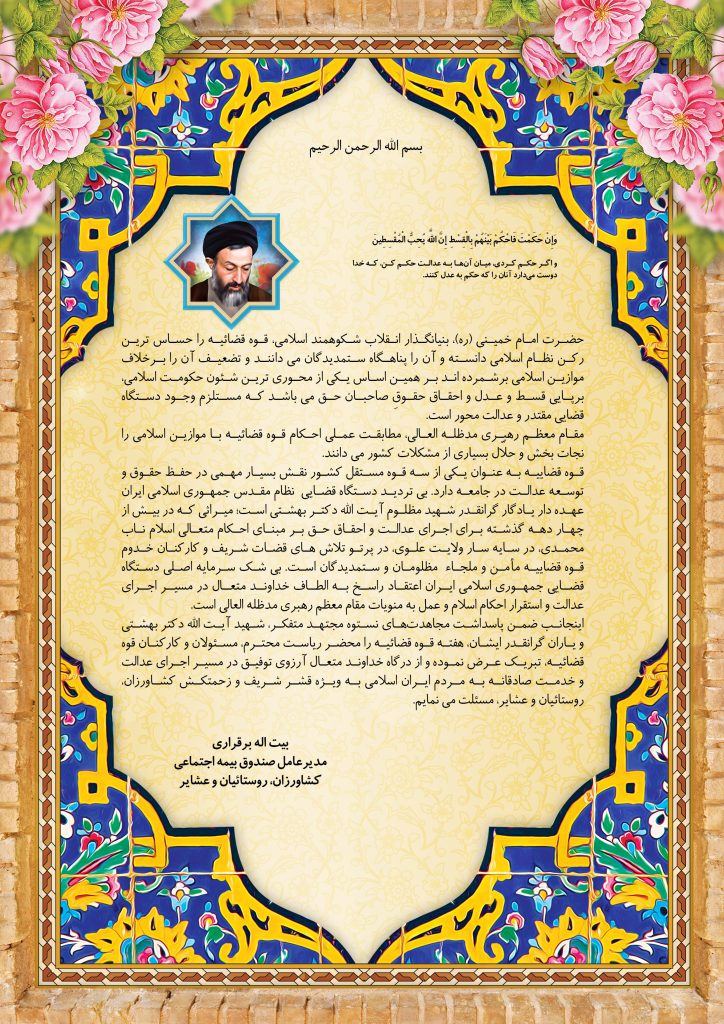 بسم الله الرحمن الرحیم
وَإِنْ حَكَمْتَ فَاحْكُمْ بَيْنَهُمْ بِالْقِسْطِ إِنَّ اللَّهَ يُحِبُّ الْمُقْسِطِينَ
و اگر حکم کردی، میان آن‌ها به عدالت حکم کن، که خدا
دوست می‌دارد آنان را که حکم به عدل کنند.
حضرت امام خمینی (ره)، بنیانگذار انقلاب شکوهمند اسلامی، قوه قضائیه را حساس ترین
رکن نظام اسلامی دانسته و آن را پناهگاه ستمدیدگان می دانند و تضعیف آن را برخلاف
موازین اسلامی برشمرده اند بر همین اساس یکی از محوری ترین شئون حکومت اسلامی،
برپایی قسط و عدل و احقاق حقوقِ صاحبان حق می باشد که مستلزم وجود دستگاه
قضایی مقتدر و عدالت محور است.
مقام معظم رهبری مدظله العالی، مطابقت عملی احکام قوه قضائیه با موازین اسلامی را
نجات بخش و حلّال بسیاری از مشکلات کشور می دانند.
قوه قضاییه به عنوان یکی از سه قوه مستقل کشور نقش بسیار مهمی در حفظ حقوق و
توسعه عدالت در جامعه دارد. بی تردید دستگاه قضایی نظام مقدس جمهوری اسلامی ایران
عهده دار یادگار گرانقدر شهید مظلوم آیت الله دکتر بهشتی است؛ میراثی که در بیش از
چهار دهه گذشته برای اجرای عدالت و احقاق حق بر مبنای احکام متعالی اسلام ناب
محمدی، در سایه سار ولایت علوی، در پرتو تلاش های قضات شریف و کارکنان خدوم
قوه قضاییه مأمن و ملجاء مظلومان و ستمدیدگان است. بی شک سرمایه اصلی دستگاه
قضایی جمهوری اسلامی ایران اعتقاد راسخ به الطاف خداوند متعال در مسیر اجرای
عدالت و استقرار احکام اسلام و عمل به منویات مقام معظم رهبری مدظله العالی است.
اینجانب ضمن پاسداشت مجاهدت‌های نستوه مجتهد متفکر، شهید آیت الله دکتر بهشتی
و یاران گرانقدر ایشان، هفته قوه قضائیه را محضر ریاست محترم، مسئولان و کارکنان قوه
قضائیه، تبریک عرض نموده و از درگاه خداوند متعال آرزوی توفیق در مسیر اجرای عدالت
و خدمت صادقانه به مردم ایران اسلامی به ویژه قشر شریف و زحمتکش کشاورزان،
روستائیان و عشایر، مسئلت می نمایم.
بیت اله برقراری
مدیرعامل صندوق بیمه اجتماعی
کشاورزان، روستائیان و عشایر